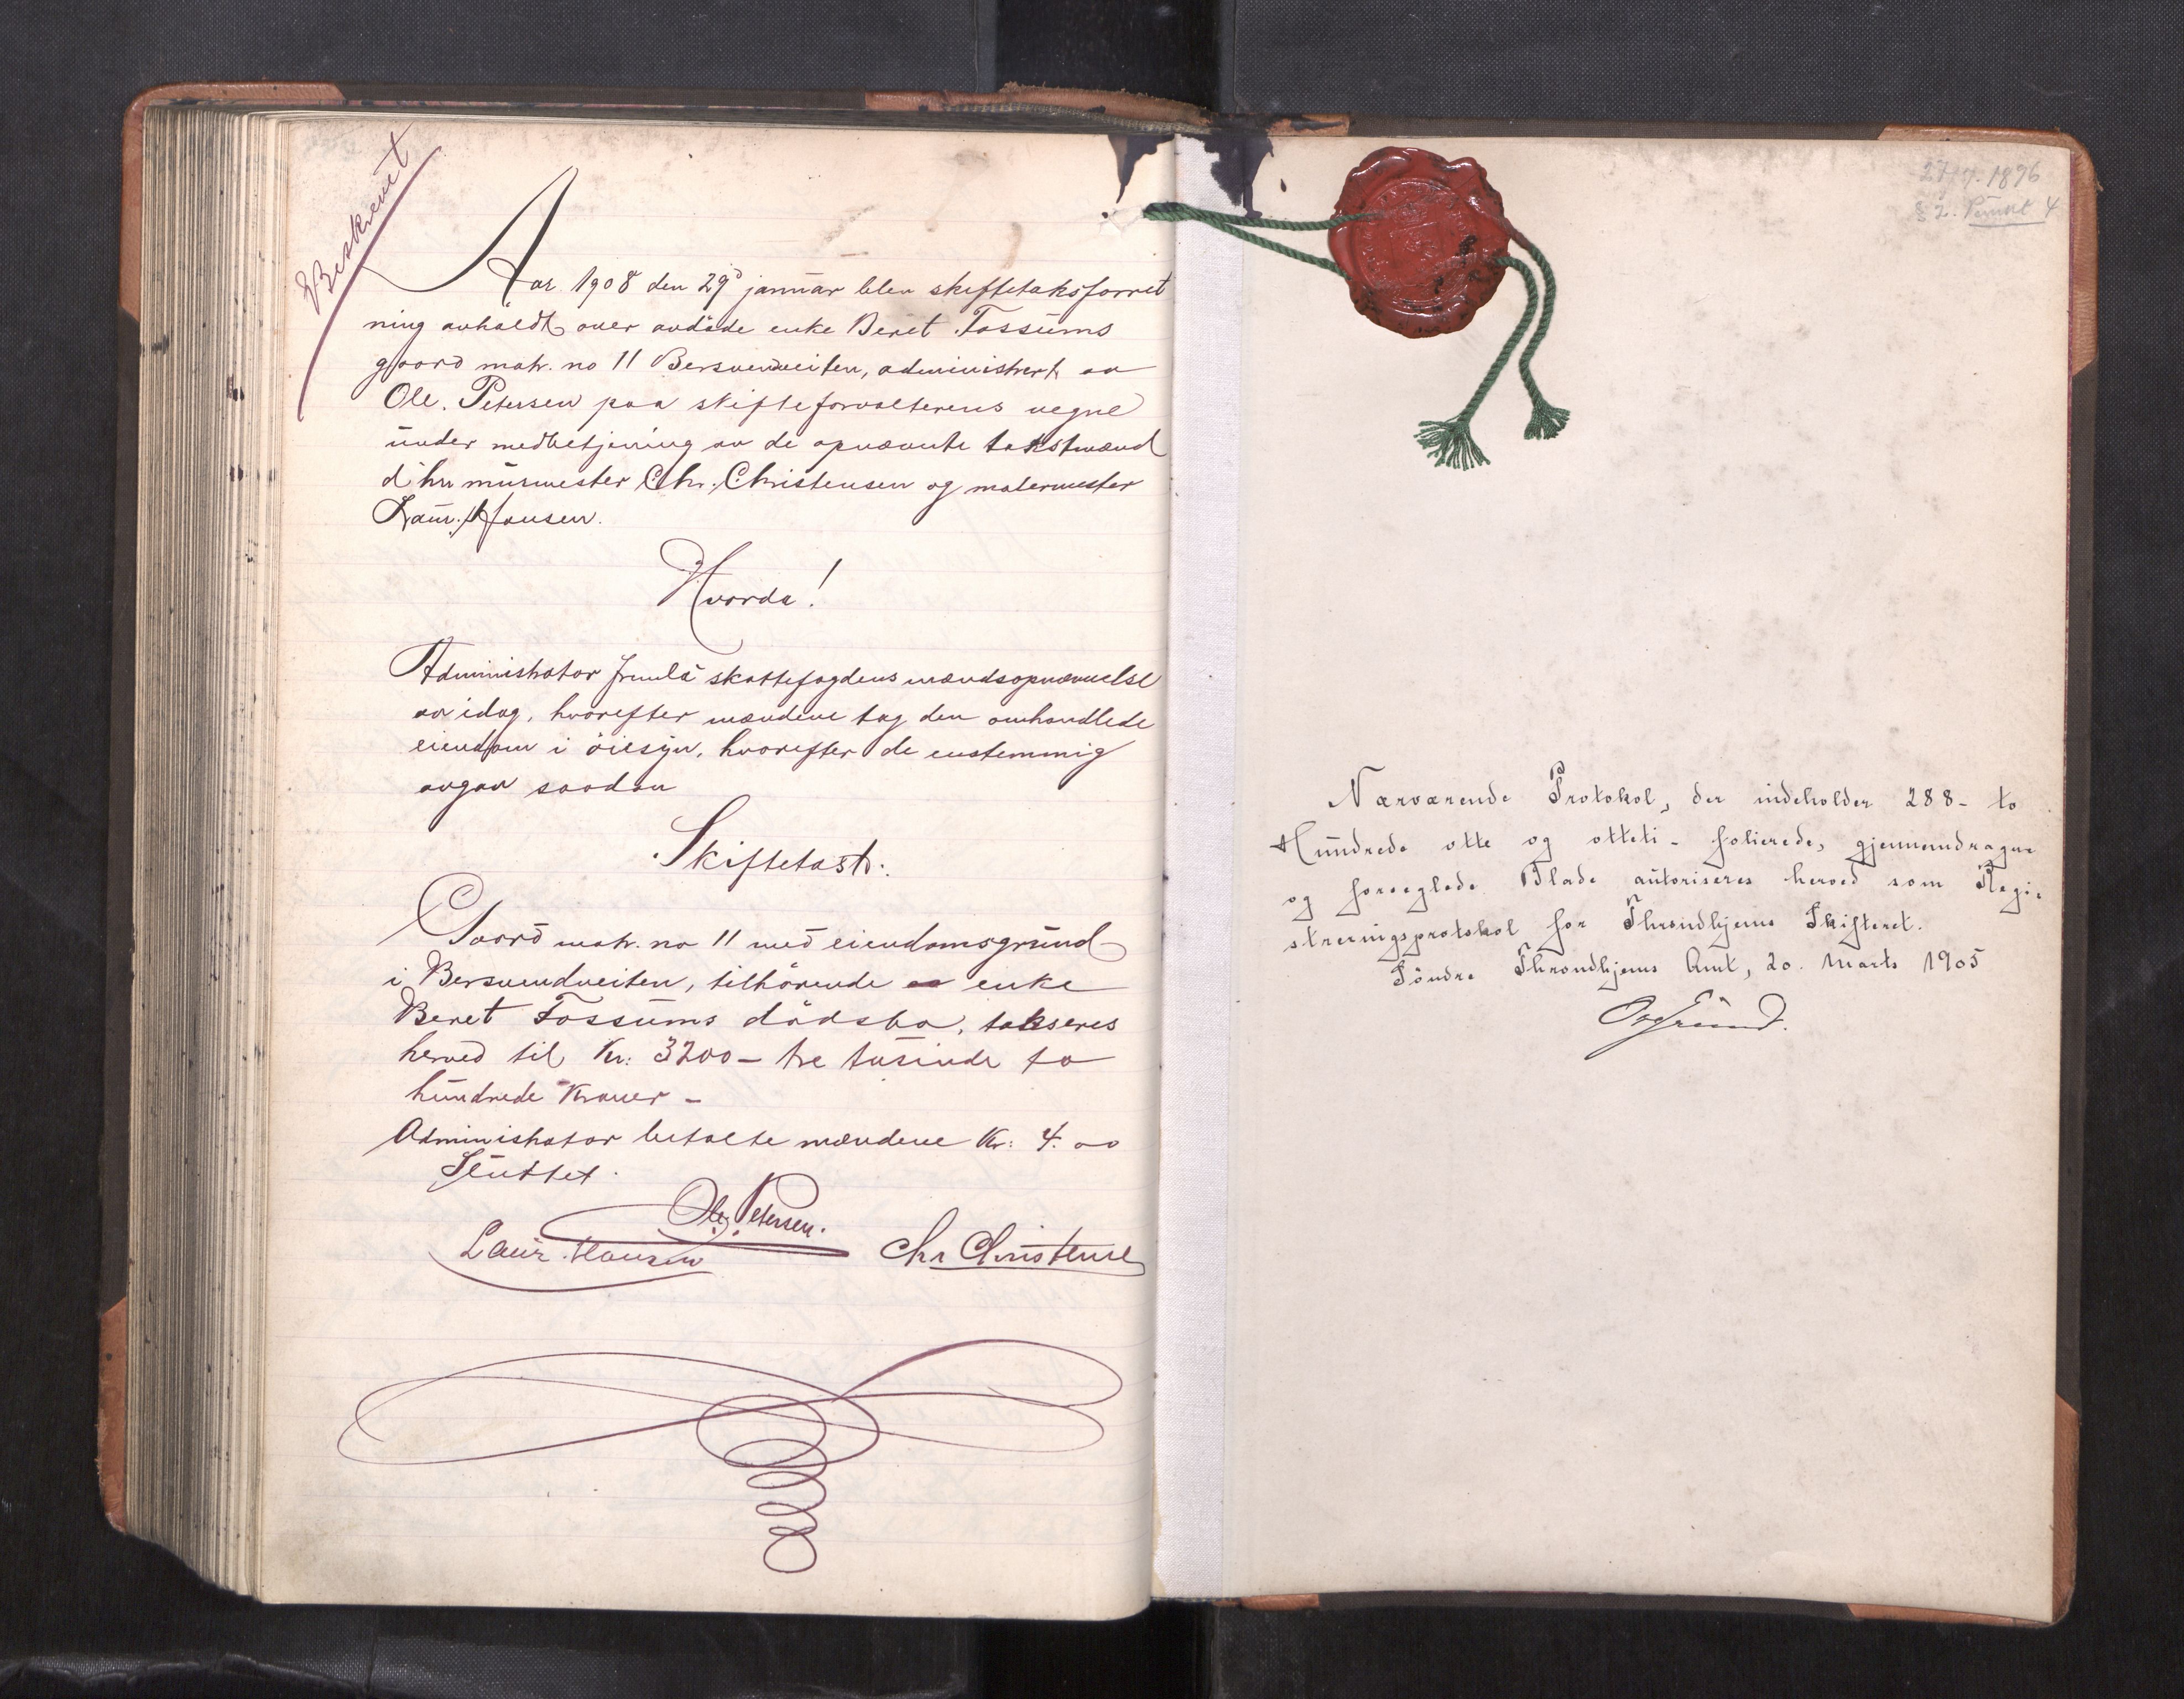 Beskrevet
Aar 1908 den 29d januar blev skiftetaksforret
ning avholdt over avdöde enke Beret Fossums
gaard matr. no 11 Bersvendveiten, administrert av
Ole. Petersen paa skifteforvalterens vegne
under medbetjening av de opnævnte takstmænd
d'hrr murmester Chr. Christensen og malermester
Laur. Hansen.
Hvorda!
Administrator fremla skattefogdens mændsopnævnelse
av idag, hvorefter mændene tog den omhandlede
eiendom i öiesyn, hvorefter de enstemmig
avgav saadan
Skiftetast:
Gaard matr. no 11 med eiendomsgrund
i Bersvendveiten, tilhörende enke
Beret Fossums dödsbo, takseres
herved til Kr: 3200 – tre tusinde to
hundrede Kroner –
Administrator betalte mændene Kr: 4.00
Sluttet.
Ole. Petersen.
Laur. Hansen Chr Christense
27/4. 1896
§ 2. Punkt 4
Nærværende Protokol, der indeholder 288 - to
Hundrede otte og otteti - folierede, gjennemdragne
og forseglede Blade autoriseres herved som Regi-
streringsprotokol for Throndhjems Skifteret.
Söndre Throndhjems Amt, 20. Marts 1905